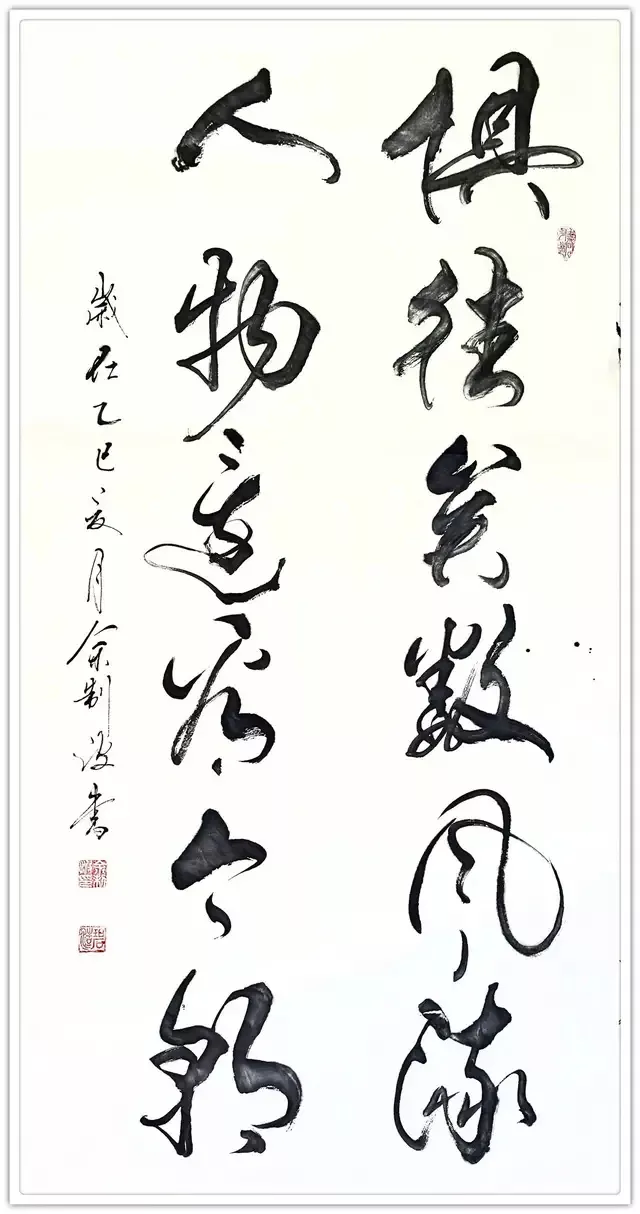 俱往矣数风流
人物还看今朝
岁在乙巳夏月余制设书